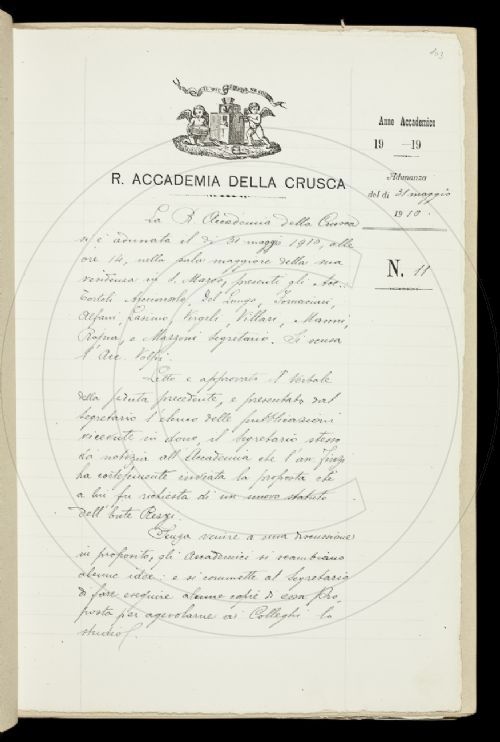 103
R. ACCADEMIA DELLA CRUSCA
Anno Accademico
19 — 19
Adunanza
del dì 31 maggio
1910.
N. 11
La R. Accademia della Crusca
si è adunata il dì 31 maggio 1910, alle
ore 14, nella sala maggiore della sua
residenza in S. Marco, presenti gli Acc.
Tortoli Arciconsolo, Del Lungo, Tornaci,
Alfani, Vergeli, Villari, Manni,
Rajna, e Mazzoni Segretario. Si scusa
l'Acc. Volpi.
Letto e approvato il Verbale
della seduta precedente, e presentato dal
Segretario l'elenco delle pubblicazioni
ricevute in dono, il Segretario stesso
dà notizia all'Accademia che l'avv.
ha cortesemente inviata la proposta che
a lui fu richiesta di un nuovo statuto
dell'Ente Rezzi.
Senza venire a una discussione
in proposito, gli Accademici si scambiano
alcune idee: e si commette al Segretario
di fare eseguire alcune copie di essa Pro-
posta per agevolarne ai Colleghi lo
studio.